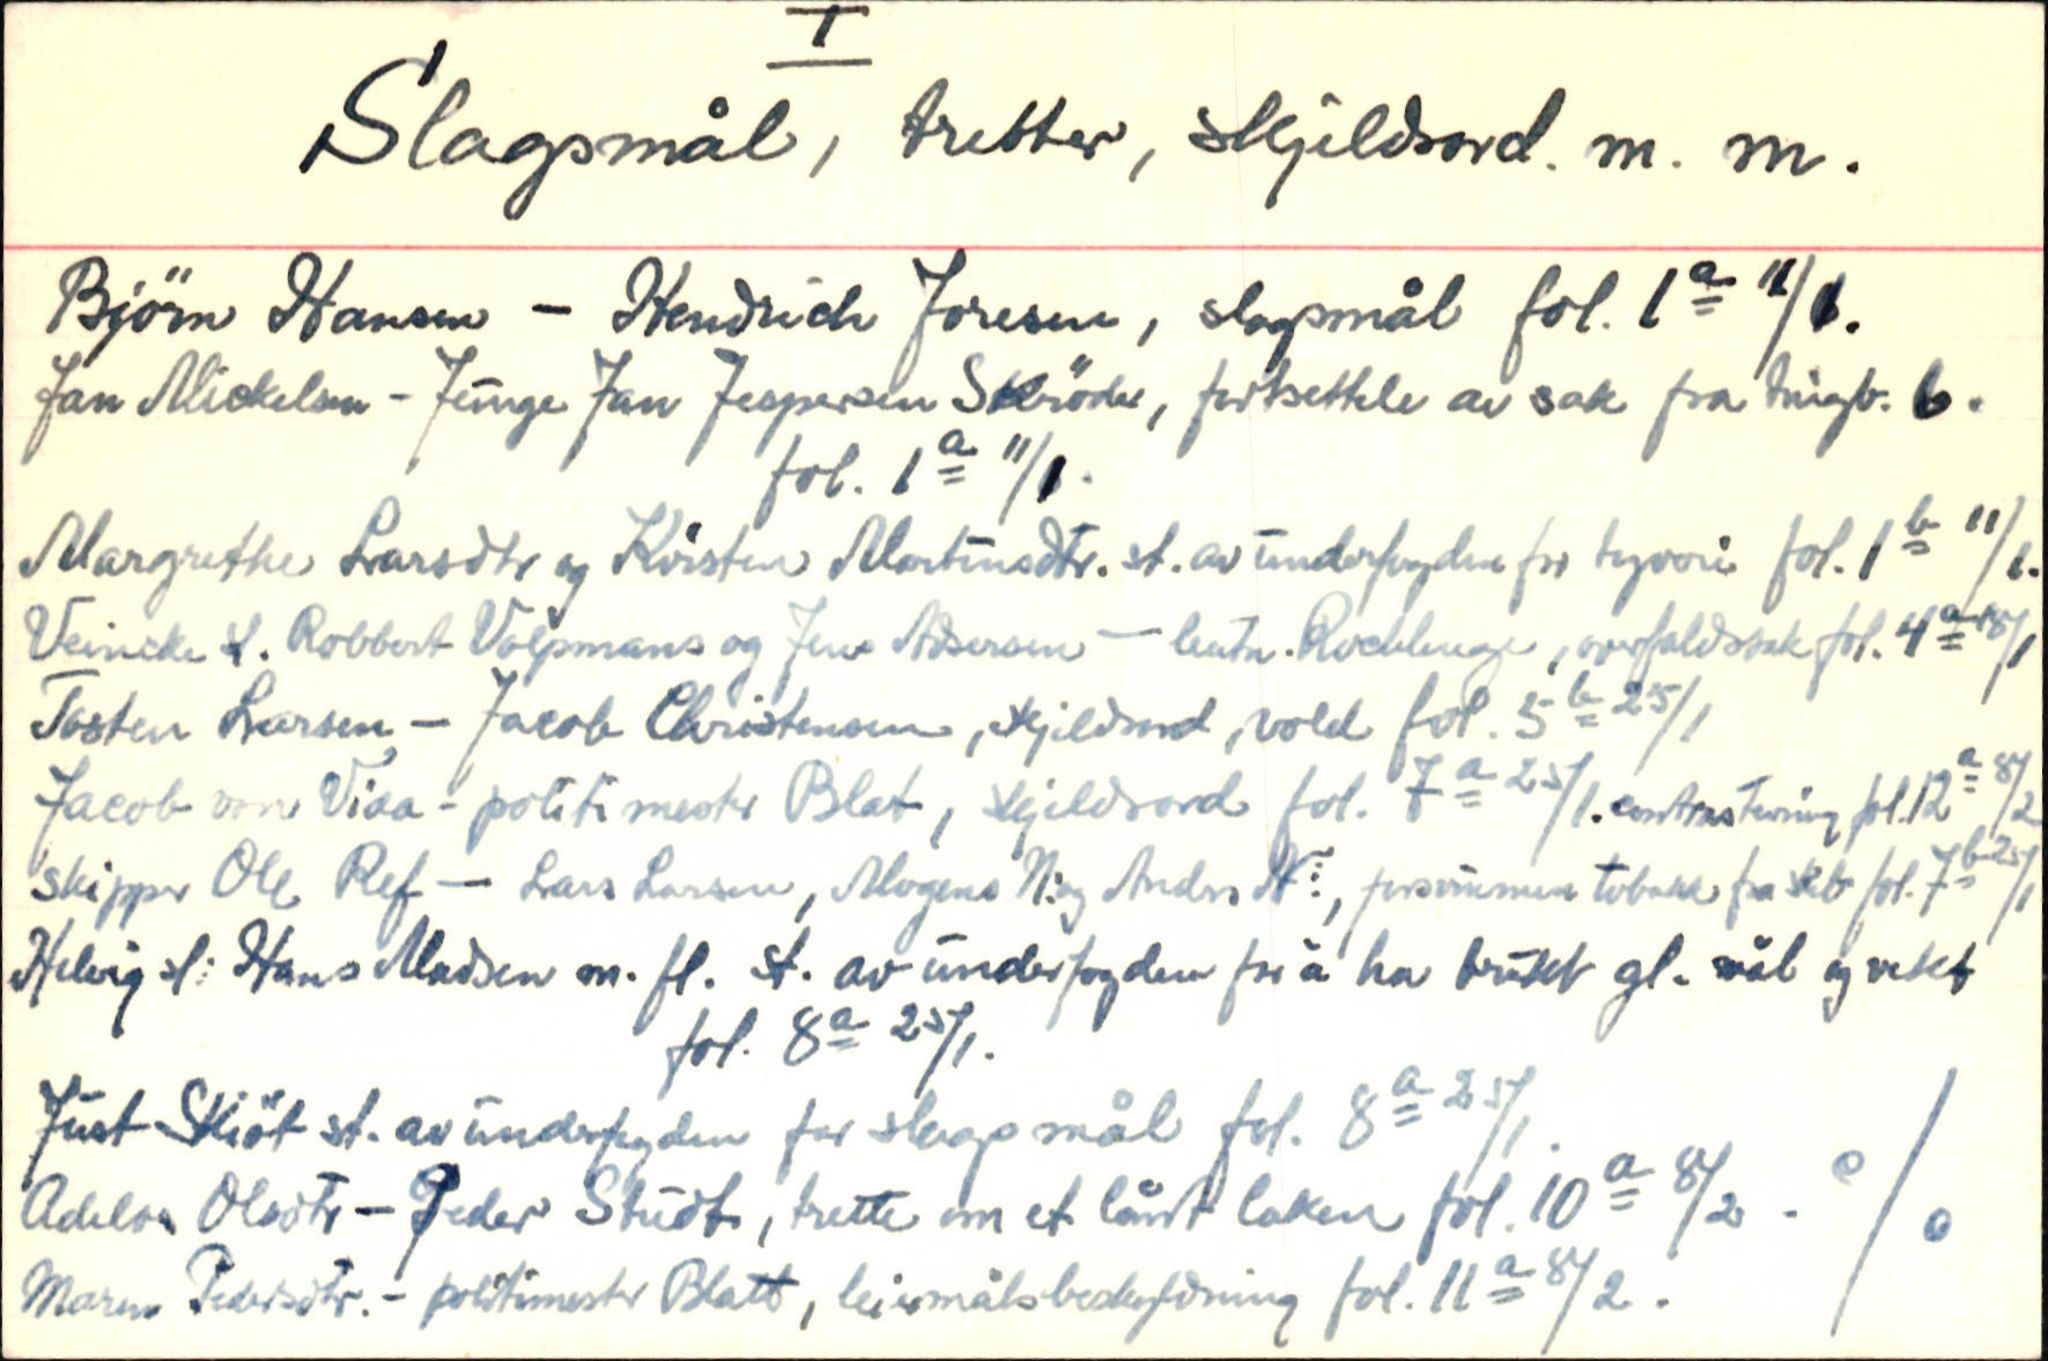 I
Slagsmål, tretter, skjeldsord. m. m.
Björn Hansen - Hendrich Joresen, slagsmål fol. 1a 11/1.
Jan Mickelsen - Junge Jan Jespersen Skröder, fortsettele av sak fra tingb. 6.
fol. 1a 11/1.
Margrethe Larsdtr og Kirsten Mortensdtr. st. av underfogden for tyvori fol. 1b 11/1.
Veincke s. Robbert Volpmans og Jens Adsersen - leutn. , overfaldssak fol. 4a 18/1
Tosten Larsen - Jacob Christensen, skjeldsord, vold fol. 5b 25/1
Jacob von Viaa - politimester Blat, skjeldsord fol. 7a 25/1. fol. 12a 8/2
skipper Ole Ref - Lars Larsen, Mogens N: og Anders N:, forsvunnen tobakk fra skib fol. 7b 25/1
Helvig sl: Hans Madsen m. fl. st. av underfogden for å ha brukt gl. mål og vekt
fol. 8a 25/1.
Just Skiöt st. av underfogden for slagsmål fol. 8a 25/1.
Olsdtr - Peder Studt, trette om et lånt laken fol. 10a 8/2.
Maren Pedersdtr. - politimester Blatt, leiermålsbeskyldning fol. 11a 8/2.
%